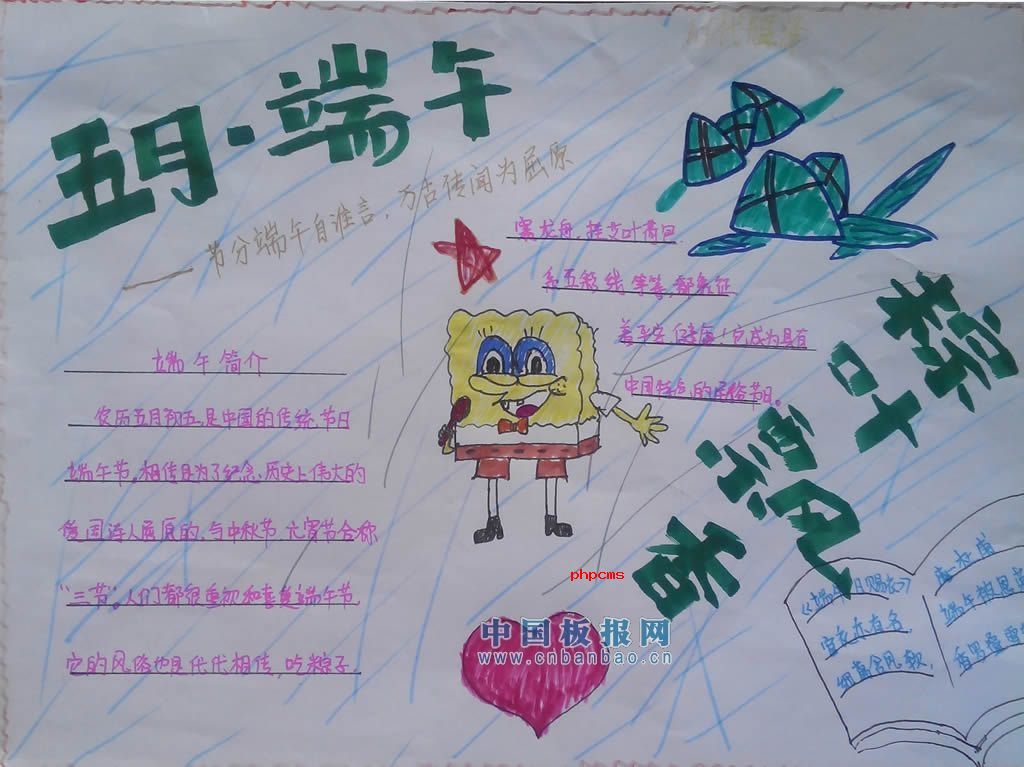 五月·端午
——节分端午自谁言,万古传闻为屈原
端午简介
农历五月初五,是中国的传统节日
端午节。相传是为了纪念历史上伟大的
爱国诗人屈原的,与中秋节 元宵节合称
“三节”。人们都很重视和喜爱端午节,
它的风俗也是代代相传,吃粽子,
赛龙舟,挂艾叶荷包
系五彩线等等,都象征
着平安健康!它成为具有
中国特点的民俗节日。
粽叶飘香
《端午日赐衣》
宫衣亦有名,
细葛含风软,
唐 杜甫
端午被恩荣
香罗叠雪
phpcms
中国板报网
www.cnbanbao.cn